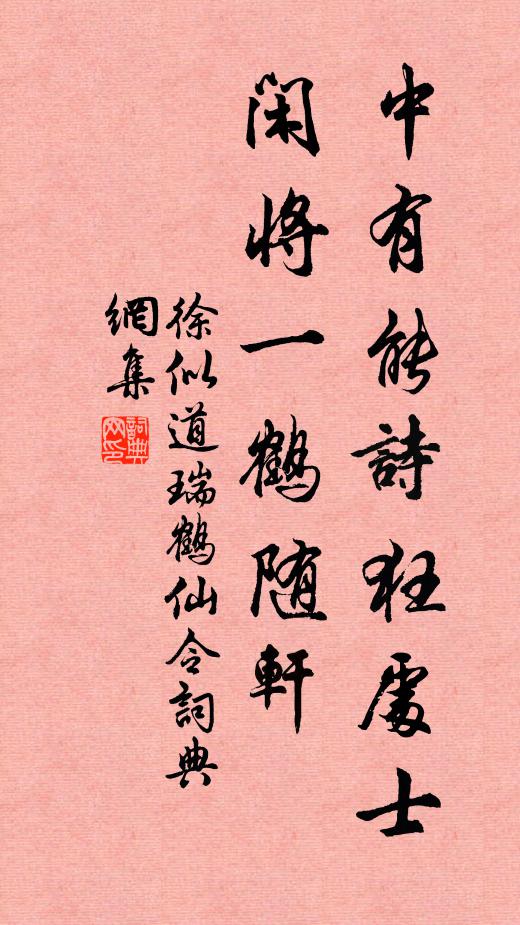 中有能詩狂處士
閑將一鶴随軒
徐似道瑞鶴仙令詞典
網集
詞典网印